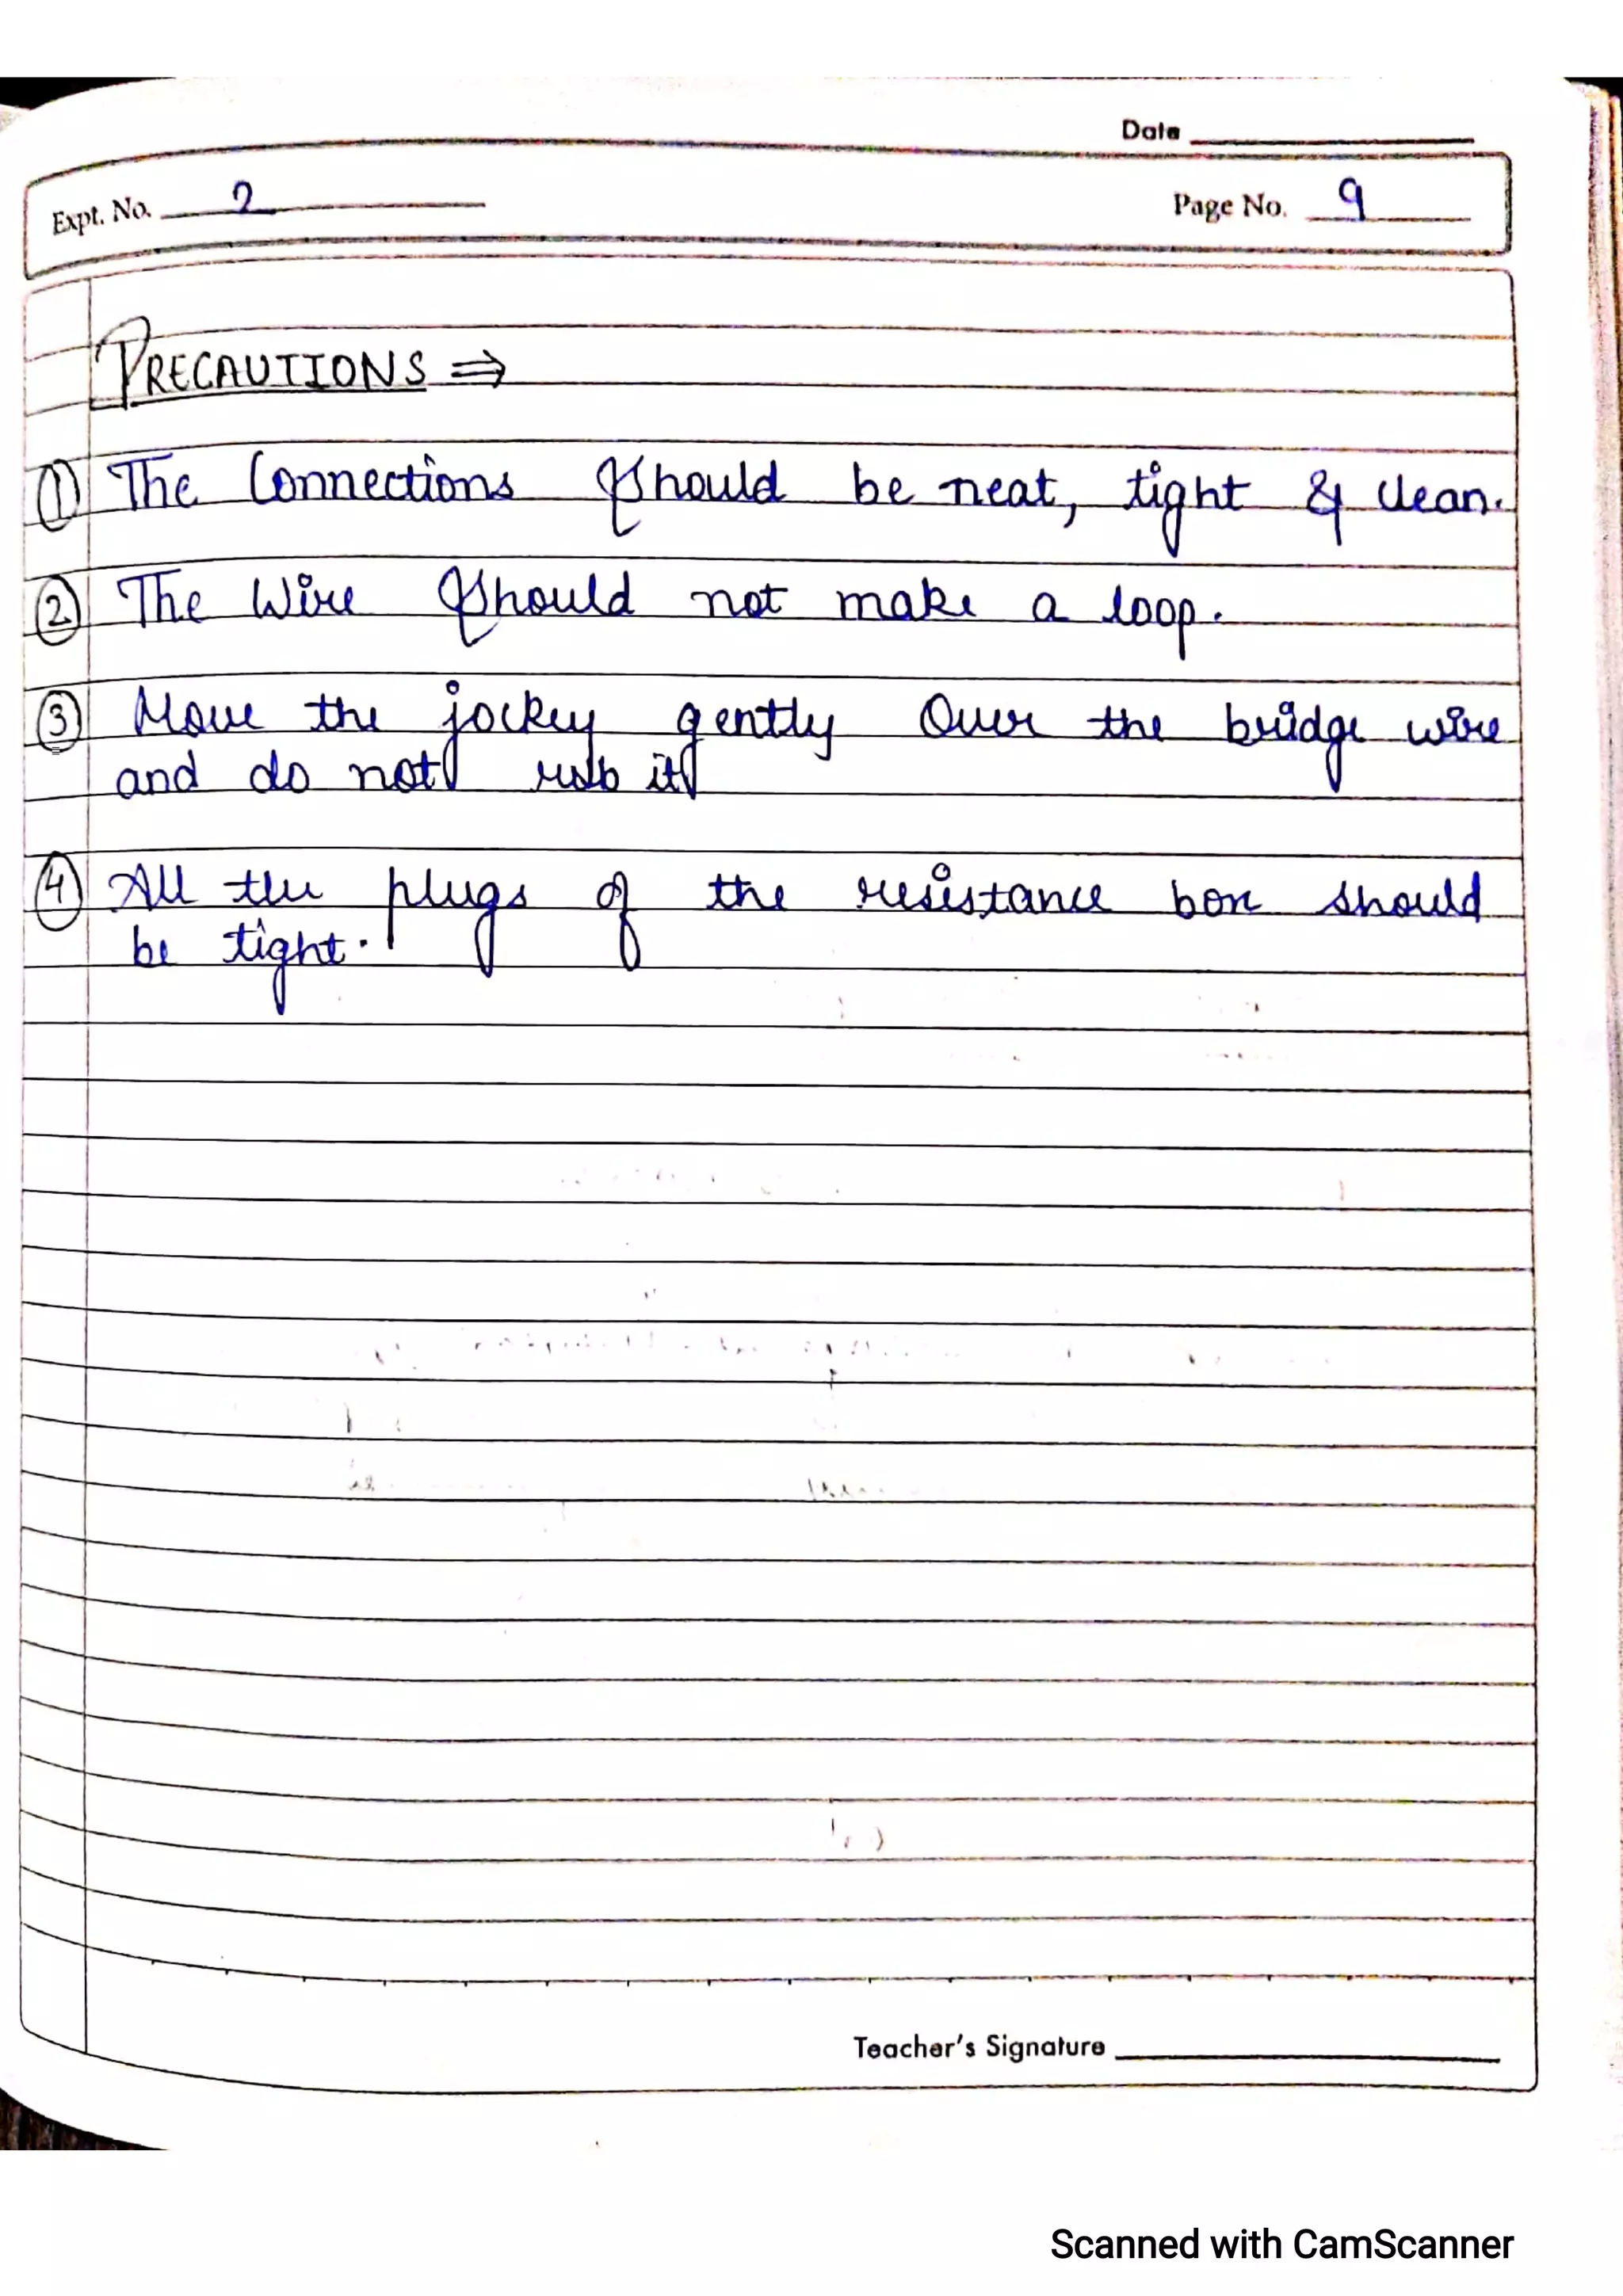 Date
Expt. No. 2
Page No. 9
PRECAUTIONS ⇒
① The Connections Should be neat, tight & clean.
② The Wire Should not make a loop.
③ Move the jockey gently Over the bridge wire
and do not rub it
④ All the plugs of the resistance box should
be tight.
Teacher's Signature
Scanned with CamScanner